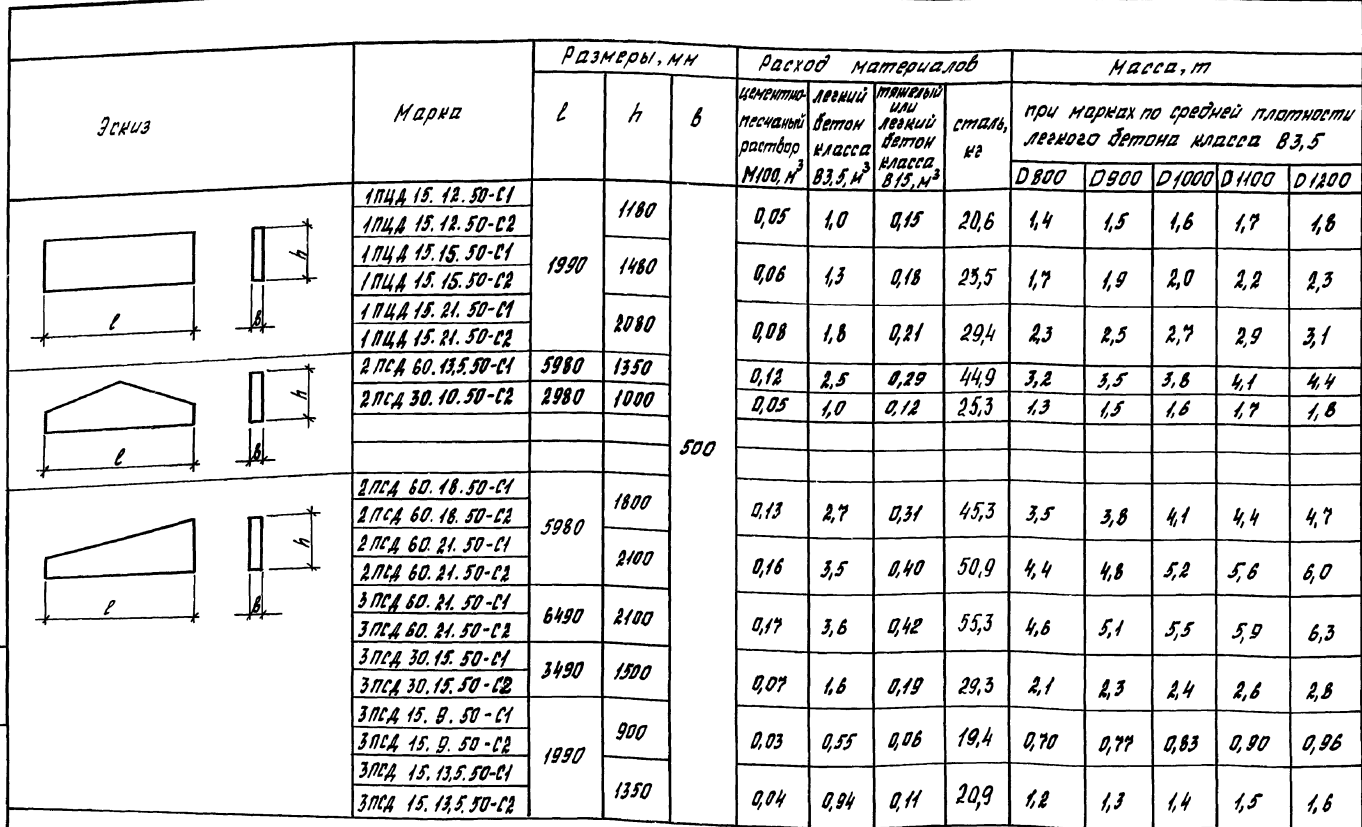 Эскиз
Марка
Размеры, мм
l
h
в
Расход материалов
цементно-
песчаный
раствор
М100, м³
легкий
бетон
класса
В3,5, м³
тяжелый
или
легкий
бетон
класса
В15, м³
сталь,
кг
Масса, т
при марках по средней плотности
легкого бетона класса В3,5
D800 D900 D1000 D1100 D1200
h
l
в
1ПЦД 15.12.50-С1
1ПЦД 15.12.50-С2
1990 1180 500 0,05 1,0 0,15 20,6 1,4 1,5 1,6 1,7 1,8
1ПЦД 15.15.50-С1
1ПЦД 15.15.50-С2
1480 0,06 1,3 0,18 23,5 1,7 1,9 2,0 2,2 2,3
1ПЦД 15.21.50-С1
1ПЦД 15.21.50-С2
2080 0,08 1,8 0,21 29,4 2,3 2,5 2,7 2,9 3,1
h
l
в
2ПСД 60.13,5.50-С1 5980 1350 0,12 2,5 0,29 44,9 3,2 3,5 3,8 4,1 4,4
2ПСД 30.10.50-С2 2980 1000 0,05 1,0 0,12 25,3 1,3 1,5 1,6 1,7 1,8
h
l
в
2ПСД 60.18.50-С1
2ПСД 60.18.50-С2
5980 1800 0,13 2,7 0,31 45,3 3,5 3,8 4,1 4,4 4,7
2ПСД 60.21.50-С1
2ПСД 60.21.50-С2
2100 0,16 3,5 0,40 50,9 4,4 4,8 5,2 5,6 6,0
3ПСД 60.21.50-С1
3ПСД 60.21.50-С2
6490 2100 0,17 3,6 0,42 55,3 4,6 5,1 5,5 5,9 6,3
3ПСД 30.15.50-С1
3ПСД 30.15.50-С2
3490 1500 0,07 1,6 0,19 29,3 2,1 2,3 2,4 2,6 2,8
3ПСД 15.9.50-С1
3ПСД 15.9.50-С2
1990 900 0,03 0,55 0,06 19,4 0,70 0,77 0,83 0,90 0,96
3ПСД 15.13,5.50-С1
3ПСД 15.13,5.50-С2
1350 0,04 0,94 0,11 20,9 1,2 1,3 1,4 1,5 1,6